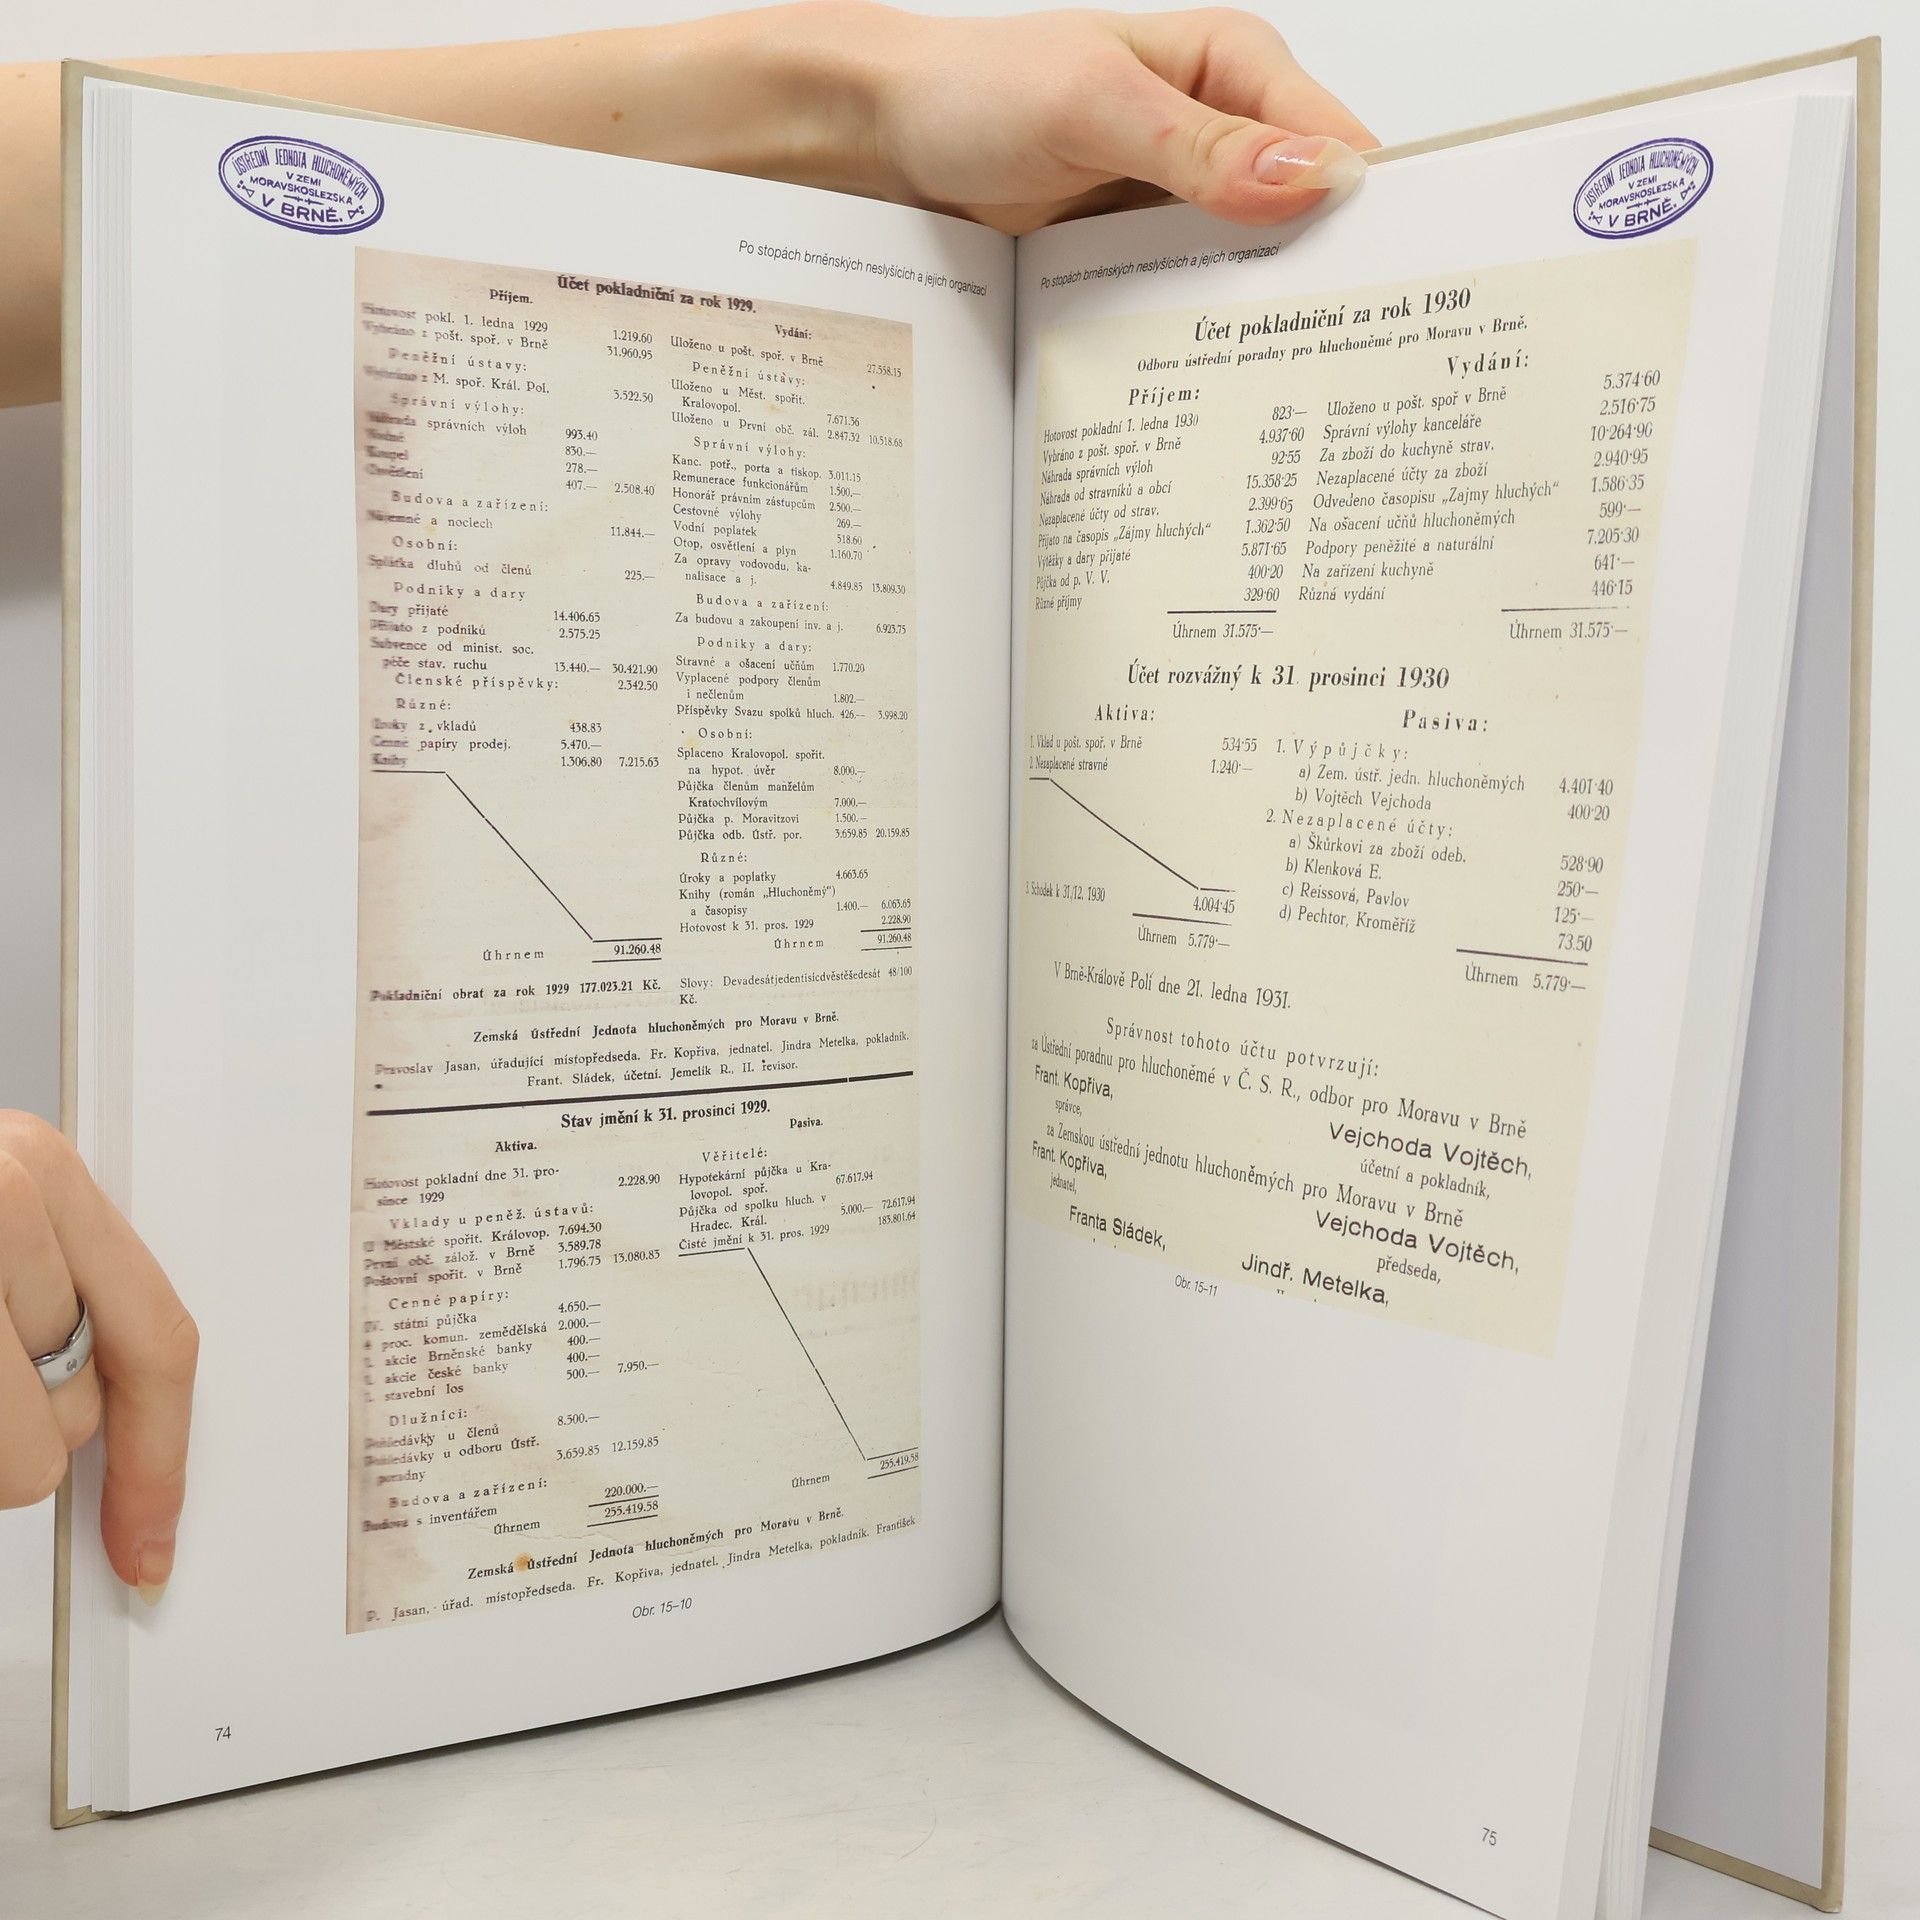 ÚSTŘEDNÍ JEDNOTA HLUCHONĚMÝCH
V ZEMI
MORAVSKOSLEZSKÁ
V BRNĚ.
Po stopách brněnských neslyšících a jejich organizací
Účet pokladniční za rok 1929.
Příjem.
Hotovost pokl. 1. ledna 1929 1.219.60
Vybráno z pošt. spoř. v Brně 31.960.95
Peněžní ústavy:
Vybráno z M. spoř. Král. Pol. 3.522.50
Správní výlohy:
Náhrada správních výloh 993.40
Vodné 830.—
Koupel 278.—
Osvětlení 407.— 2.508.40
Budova a zařízení:
Nájemné a noclech 11.844.—
Osobní:
Splátka dluhů od členů 225.—
Podniky a dary
Dary přijaté 14.406.65
Přijato z podniků 2.575.25
Subvence od minist. soc.
péče stav. ruchu 13.440.— 30.421.90
Členské příspěvky: 2.342.50
Různé:
Úroky z vkladů 438.83
Cenné papíry prodej. 5.470.—
Knihy 1.306.80 7.215.63
Úhrnem 91.260.48
Vydání:
Uloženo u pošt. spoř. v Brně 27.558.15
Peněžní ústávy:
Uloženo u Měst. spořit.
Kralovopol. 7.671.36
Uloženo u První obč. zál. 2.847.32 10.518.68
Správní výlohy:
Kanc. potř., porta a tiskop. 3.011.15
Remunerace funkcionářům 1.500,—
Honorář právním zástupcům 2.500.—
Cestovné výlohy 269.—
Vodní poplatek 518.60
Otop, osvětlení a plyn 1.160.70
Za opravy vodovodu, ka-
nalisace a j. 4.849.85 13.809.30
Budova a zařízení:
Za budovu a zakoupení inv. a j. 6.923.75
Podniky a dary:
Stravné a ošacení učňům 1.770.20
Vyplacené podpory členům
i nečlenům 1.802.—
Příspěvky Svazu spolků hluch. 426.— 3.998.20
Osobní:
Splaceno Kralovopol. spořit.
na hypot. úvěr 8.000.—
Půjčka členům manželům
Kratochvílovým 7.000.—
Půjčka p. Moravitzovi 1.500.—
Půjčka odb. Ústř. por. 3.659.85 20.159.85
Různé:
Úroky a poplatky 4.663.65
Knihy (román „Hluchoněmý“)
a časopisy 1.400.— 6.063.65
Hotovost k 31. pros. 1929 2.228.90
Úhrnem 91.260.48
Pokladniční obrat za rok 1929 177.023.21 Kč.
Slovy: Devadesátjedentisícdvěstěšedesát 48/100
Kč.
Zemská Ústřední Jednota hluchoněmých pro Moravu v Brně.
Pravoslav Jasan, úřadující místopředseda. Fr. Kopřiva, jednatel. Jindra Metelka, pokladník.
Frant. Sládek, účetní. Jemelík R., II. revisor.
Stav jmění k 31. prosinci 1929.
Aktiva.
Hotovost pokladní dne 31. pro-
since 1929 2.228.90
Vklady u peněž. ústavů:
U Městské spořit. Královop. 7.694.30
První obč. zálož. v Brně 3.589.78
Poštovní spořit. v Brně 1.796.75 13.080.83
Cenné papíry:
IV. státní půjčka 4.650.—
4 proc. komun. zemědělská 2.000.—
1. akcie Brněnské banky 400.—
1. akcie české banky 400.—
1. stavební los 500.— 7.950.—
Dlužníci:
Pohledávky u členů 8.500.—
Pohledávky u odboru Ústř.
poradny 3.659.85 12.159.85
Budova a zařízení:
Budova s inventářem 220.000.—
Úhrnem 255.419.58
Pasiva.
Věřitelé:
Hypotekární půjčka u Kra-
lovopol. spoř. 67.617.94
Půjčka od spolku hluch. v
Hradec. Král. 5.000.— 72.617.94
Čisté jmění k 31. pros. 1929 183.801.64
Úhrnem 255.419.58
Zemská Ústřední Jednota hluchoněmých pro Moravu v Brně.
P. Jasan, úřad. místopředseda. Fr. Kopřiva, jednatel. Jindra Metelka, pokladník. František
Obr. 15–10
74
ÚSTŘEDNÍ JEDNOTA HLUCHONĚMÝCH
V ZEMI
MORAVSKOSLEZSKÁ
V BRNĚ.
Po stopách brněnských neslyšících a jejich organizací
Účet pokladniční za rok 1930
Odboru ústřední poradny pro hluchoněmé pro Moravu v Brně.
Příjem:
Hotovost pokladní 1. ledna 1930 823·—
Vybráno z pošt. spoř. v Brně 4.937·60
Náhrada správních výloh 92·55
Náhrada od stravníků a obcí 15.358·25
Nezaplacené účty od strav. 2.399·65
Přijato na časopis „Zájmy hluchých“ 1.362·50
Výtěžky a dary přijaté 5.871·65
Půjčka od p. V. V. 400·20
Různé příjmy 329·60
Úhrnem 31.575·—
Vydání:
Uloženo u pošt. spoř v Brně 5.374·60
Správní výlohy kanceláře 2.516·75
Za zboží do kuchyně strav. 10·264·90
Nezaplacené účty za zboží 2.940·95
Odvedeno časopisu „Zajmy hluchých“ 1.586·35
Na ošacení učňů hluchoněmých 599·—
Podpory peněžité a naturální 7.205·30
Na zařízení kuchyně 641·—
Různá vydání 446·15
Úhrnem 31.575·—
Účet rozvážný k 31. prosinci 1930
Aktiva:
1. Vklad u pošt. spoř. v Brně 534·55
2. Nezaplacené stravné 1.240·—
3. Schodek k 31./12. 1930 4.004·45
Úhrnem 5.779·—
Pasiva:
1. Výpůjčky:
a) Zem. ústř. jedn. hluchoněmých 4.401·40
b) Vojtěch Vejchoda 400·20
2. Nezaplacené účty:
a) Škůrkovi za zboží odeb. 528·90
b) Klenková E. 250·—
c) Reissová, Pavlov 125·—
d) Pechtor, Kroměříž 73.50
Úhrnem 5.779·—
V Brně-Králově Poli dne 21. ledna 1931.
Správnost tohoto účtu potvrzují:
za Ústřední poradnu pro hluchoněmé v Č. S. R., odbor pro Moravu v Brně
Frant. Kopřiva, Vejchoda Vojtěch,
správce, účetní a pokladník,
za Zemskou ústřední jednotu hluchoněmých pro Moravu v Brně
Frant. Kopřiva, Vejchoda Vojtěch,
jednatel, předseda,
Franta Sládek, Jindř. Metelka,
Obr. 15–11
75